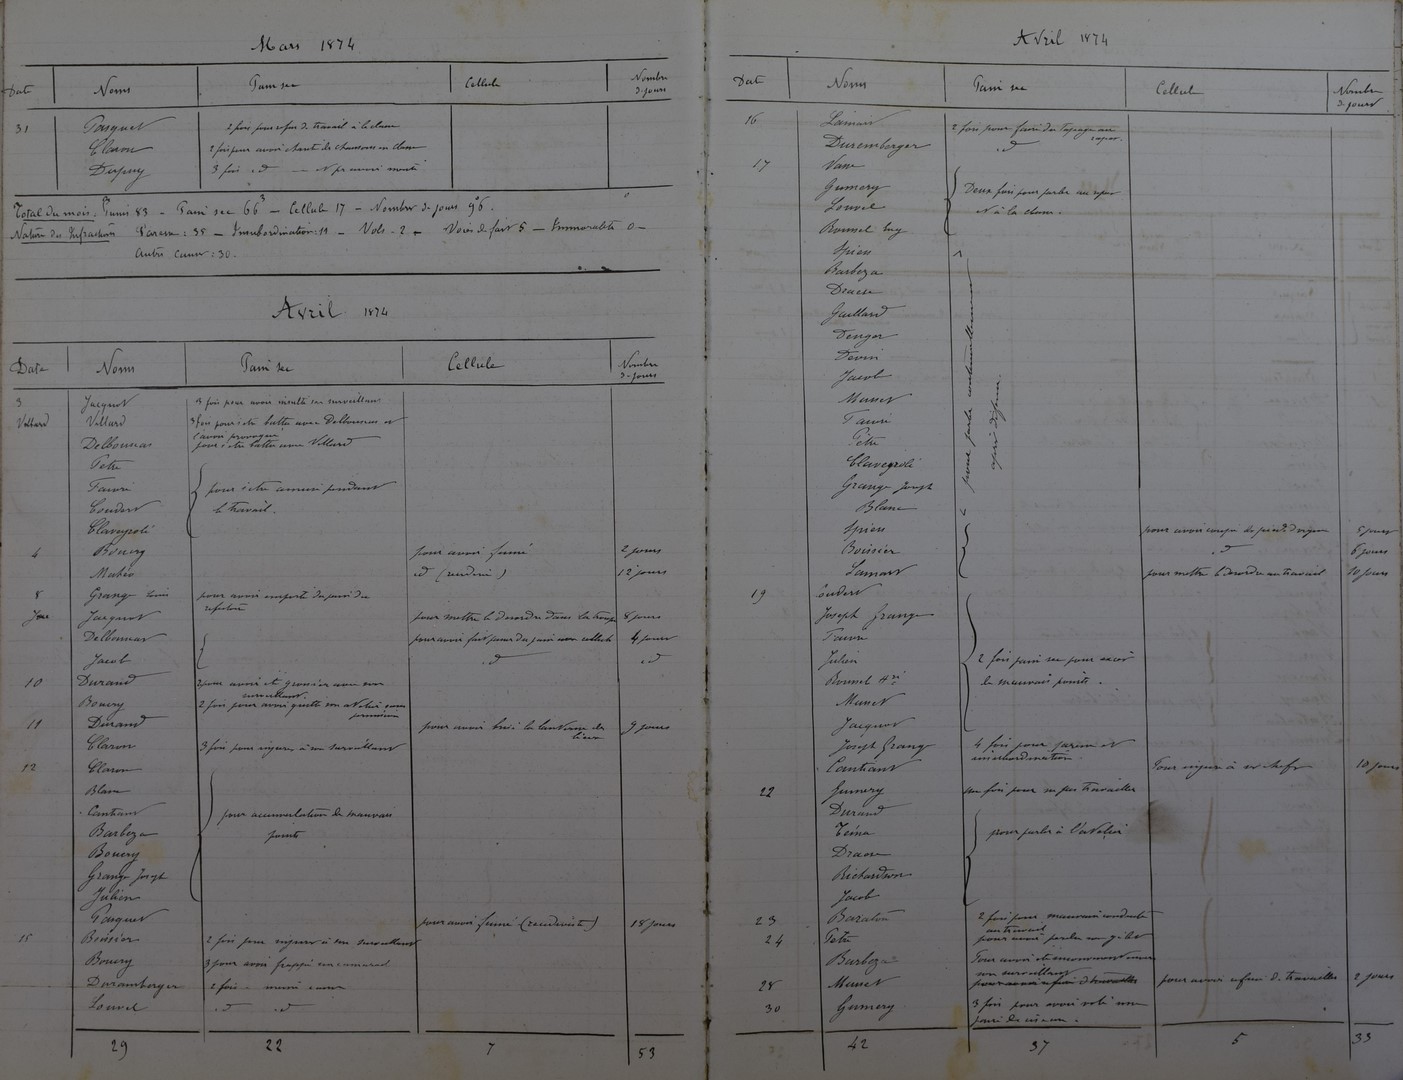 Mars 1874
Date Noms Pain sec Cellule Nombre de jours
31 Pasquet 2 fois pour refus de travail à la classe
Claron 2 fois pour avoir chanté des chansons en classe
Dupuy 3 fois id
Total du mois. Punis 83 - Pain sec 66 - Cellule 17 - Nombre de jours 96.
Nature des Infractions Paresse : 35 - Insubordination : 11 - Vols - 2 - Voies de fait 5 - Immoralité 0 -
Autres causes : 30.
Avril 1874
Date Noms Pain sec Cellule Nombre de jours
3 Jacquot 3 fois pour avoir insulté un surveillant
Villard Villard 3 fois pour s'être battu avec Delbousas et
l'avoir provoqué
Delbousas pour s'être battu avec Villard
Petre
Fauré pour s'être amusé pendant
Coudert le travail.
Clavepolé
4 Bouery pour avoir fumé 2 jours
Mabéo id 12 jours
8 Grange Louis pour avoir emporté du pain du
réfectoire
Jacquot pour mettre le désordre dans la troupe 8 jours
Delbousas pour avoir fait passer du pain aux cellules 4 jours
Jacob id id
10 Durand
surveillant.
Bouery 2 fois pour avoir quitté son atelier sans
permission
11 Durand pour avoir brisé la lanterne des
lieux 9 jours
Claron 3 fois pour injures à son surveillant
12 Claron
Blanc
Cantiant pour accumulation de mauvais
Barboza points
Bouery
Grange Joseph
Julien
Pasquet pour avoir fumé (récidiviste) 18 jours
15 Boissier 2 fois pour injures à son surveillant
Bouery 3 pour avoir frappé un camarade
Duremberger 2 fois même cause
Louvel id id
29 22 7 53
Avril 1874
Date Noms Pain sec Cellule Nombre de jours
16 Lamart 2 fois pour faire du tapage au
repos.
Duremberger id
17 Vasse
Gumery Deux fois pour parler au repos
Louvel et à la classe.
Bonnel
Spiess
Barboza
Dracse
Gaillard
Denger
Devin
Jacob
Musset
Fauré
Petre
Clavepolé
Grange Joseph
Blanc
pour parler continuellement
après défense.
Spiess 5 jours
Boissier id 6 jours
Lamart pour mettre le désordre au travail 10 jours
19 Coudert
Joseph Grange
Fauré
Julien 2 fois pain sec pour excès
Bonnel de mauvais points.
Musset
Jacquot
Joseph Grange 4 fois pour paresse et
insubordination.
Cantiant Pour injures à ses chefs 10 jours
22 Gumery une fois pour ne pas travailler
Durand
Teina pour parler à l'atelier
Dracse
Richardson
Jacob
23 Baraton 2 fois pour mauvaise conduite
au travail
24 Petre pour avoir perdu son gilet
Barboza Pour avoir été
son surveillant
28 Musset pour avoir refusé de travailler 2 jours
30 Gumery 3 fois pour avoir volé une
paire de ciseaux.
42 37 5 33